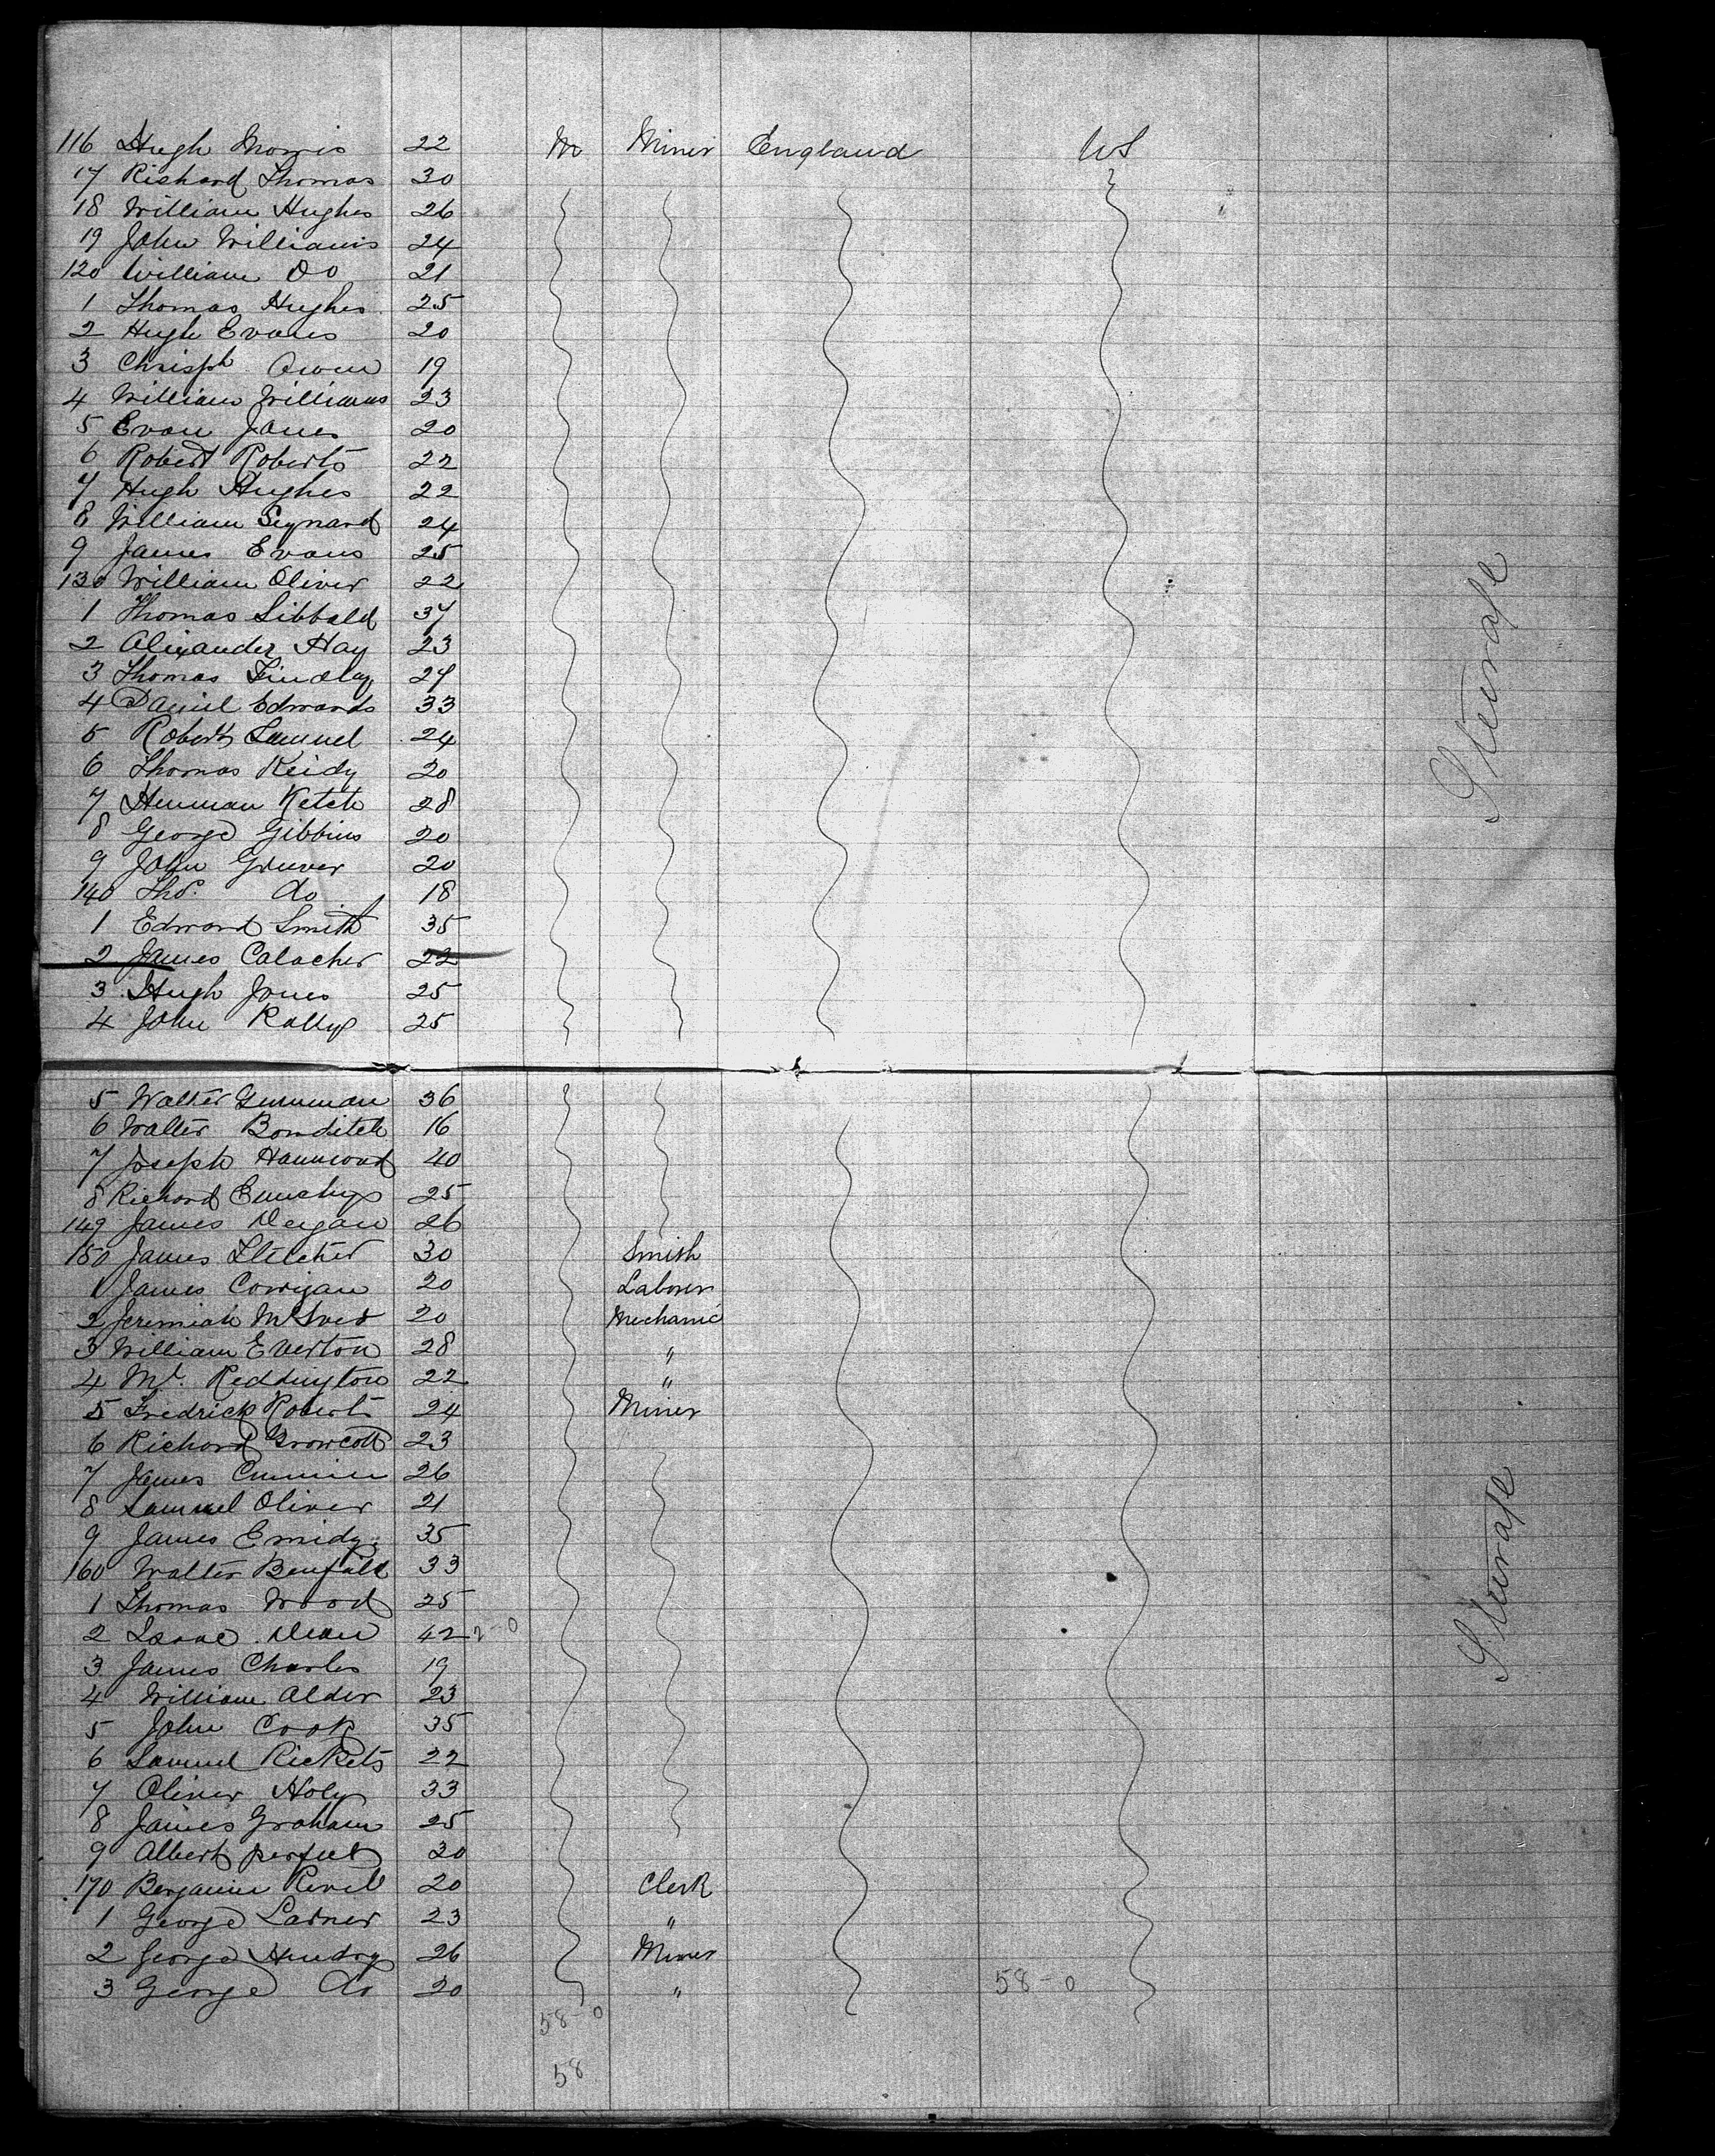 116 Hugh Morris 22 M Miner England US
17 Richard Thomas 30
18 William Hughes 26
19 John Williams 24
120 William Do 21
1 Thomas Hughes 25
2 Hugh Evans 20
3 Chrisph Owen 19
4 William Williams 23
5 Evan Jones 20
6 Robert Roberts 22
7 Hugh Hughes 22
8 William 24
9 James Evans 25
130 William Oliver 22
1 Thomas Sibbald 37
2 Alixander Hay 23
3 Thomas Findlay 24
4 Daniel Edwards 33
5 Robert Samuel 24
6 Thomas Reidy 20
7 Herman Ketch 28
8 George Gibbins 20
9 John Gruver 20
140 Thos. do 18
1 Edward Smith 35
2 James Calacher 22
3 Hugh Jones 25
4 John 25
Steerage
5 Walter 36
6 Walter Bowditch 16
7 Joseph Hammond 40
8 Richard 25
149 James Degan 26
150 James Fletcher 30 Smith
1 James Corrigan 20 Laborer
2 Jeremiah 20 Mechanic
3 William Everton 28 "
4 Ml. Reddington 22 "
5 Fredrick Roberts 24 Miner
6 Richard Growcott 23
7 James 26
8 Samuel Oliver 21
9 James Emidy 35
160 Walter 33
1 Thomas Wood 25
2 Isaac Dean 42 2-0
3 James Charles 19
4 William Alder 23
5 John Cook 35
6 Samuel Rickets 22
7 Oliver Holy 33
8 James Graham 25
9 Albert perfect 30
170 Benjamin Revill 20 Clerk
1 George Larner 23 "
2 George Hendry 26 Miner
3 George do 20 " 58-0
Steerage
58-0
58